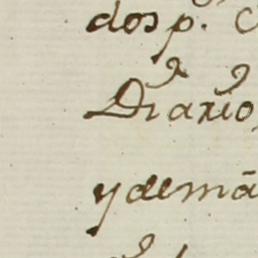 dos p.r
Diario
y demã